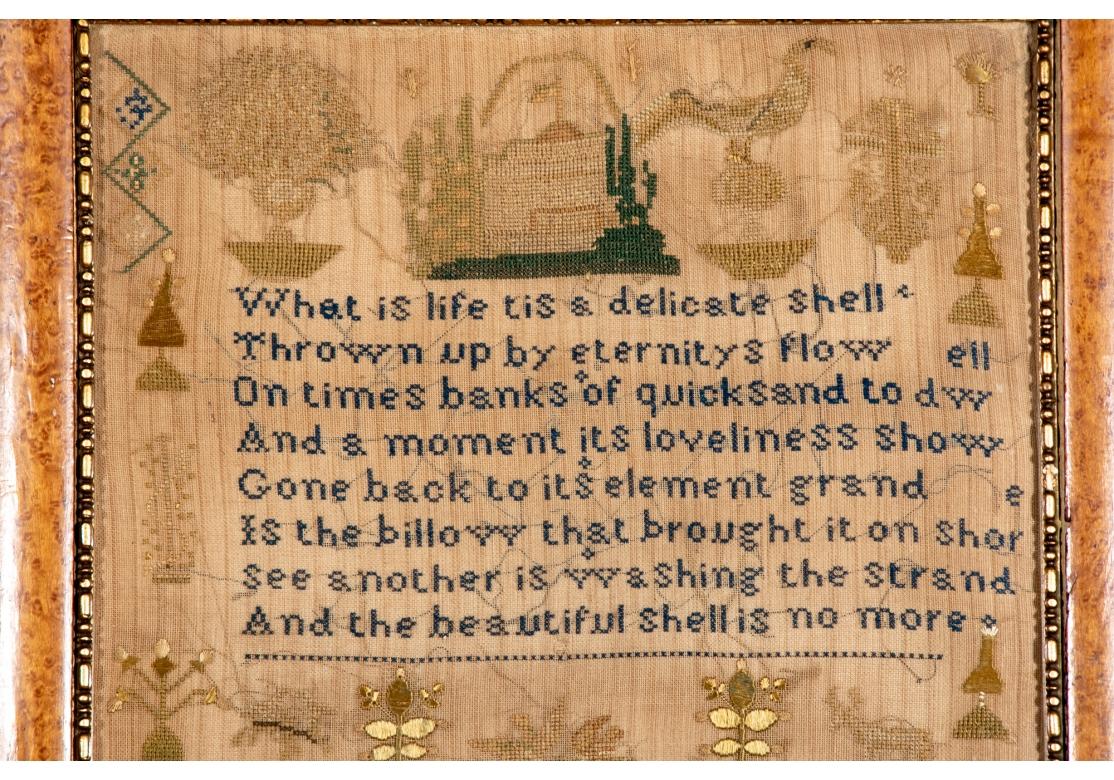 What is life tis a delicate shell
Thrown up by eternitys flow
On times banks of quicksand to dwell
And a moment its loveliness show
Gone back to its element grand
Is the billow that brought it on shore
see another is washing the strand
And the beautiful shell is no more